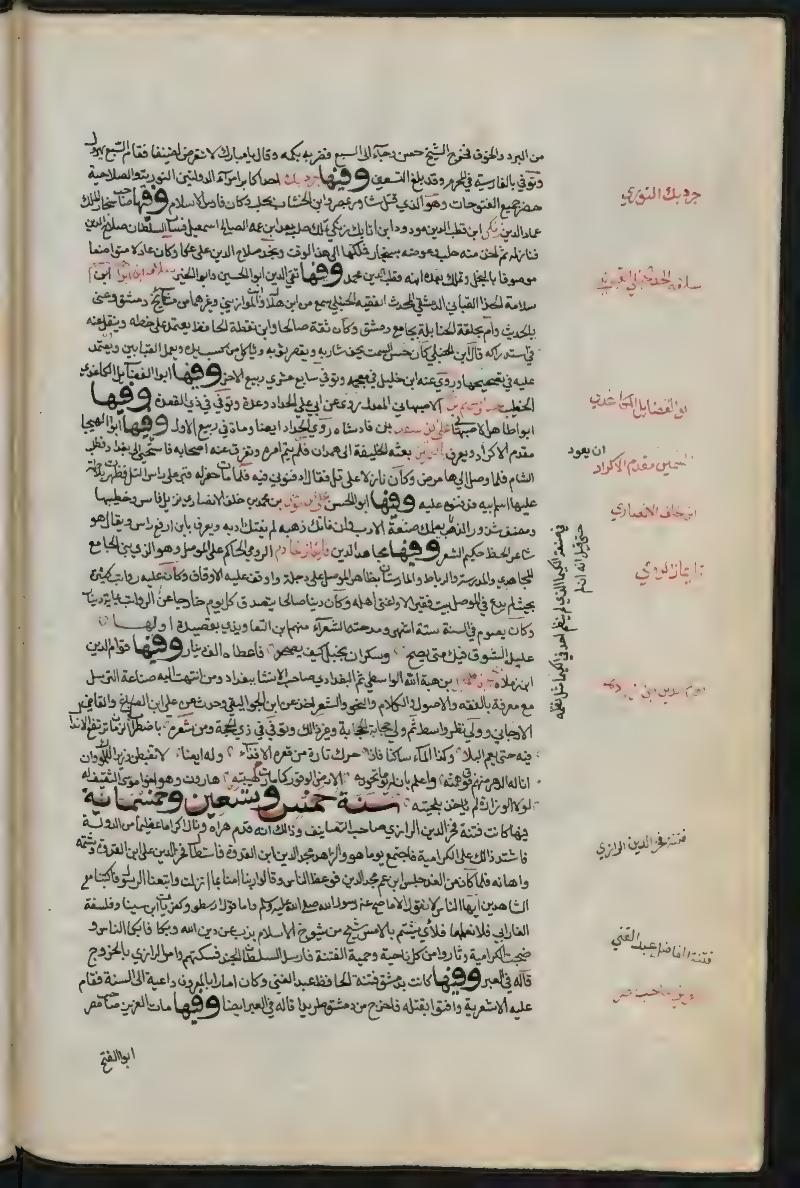 من البرد والخوف فخرج الشيخ حسن وجاء الى السبع فضربه بكمه وقال يا مبارك لا تتعرض لضيفنا فقام السبع يهرول
وتوفي بالفارسية في المحرم وقد بلغ التسعين وفيها جرديك احد اكابر امراء الدولتين النورية والصلاحية
حضر جميع الفتوحات وهو الذي قتل شاور بمصر وابن الخشاب بحلب وكان فارس الاسلام وفيها صاحب سنجار الملك
عماد الدين زنكي ابن قطب الدين مودود ابن اتابك زنكي تملك حلب بعد ابن عمه الصالح اسمعيل فسار السلطان صلاح الدين
فنازله ثم اخذ منه حلب وعوضه بسنجار فملكها الى هذا الوقت ونجد صلاح الدين على عكا وكان عادلا متواضعا
موصوفا بالبخل وتملك بعده ابنه قطب الدين محمد وفيها تقي الدين ابو الحسين وابو الخير
سلامة الحداد القباني الدمشقي المحدث الفقيه الحنبلي سمع من ابن هلال والموازيني وغيرهما من مشايخ دمشق وعني
بالحديث وأم بحلقة الحنابلة بجامع دمشق وكان ثقة صالحا وابن نقطة الحافظ يعتمد على خطه وينقل عنه
في استدراكه قال ابن الحنبلي كان حسن السمت يحف شاربه ويقصر ثوبه وياكل من كسب يده ويعمل القبابين ويعتمد
عليه في تصحيحها وروى عنه ابن خليل في معجمه وتوفي سابع عشري ربيع الاخر وفيها ابو الفضائل الكاغدي
الخطيب الاصبهاني المعدل روى عن ابي علي الحداد وعدة وتوفي في ذي القعدة وفيها
ابو طاهر الاصبهاني علي بن سعيد بن فادشاه روى الحداد ايضا ومات في ربيع الاول وفيها ابو الهيجا
مقدم الاكراد ويعرف بالسمين بعثه الخليفة الى همدان فلم يتم امره وتفرق عنه اصحابه فاستحيى ان يعود الى بغداد فطلب
الشام فلما وصل اليها مرض وكان نازلا على تل فقال ادفنوني فيه فلما مات حفر له قبر على راس التل فظهرت بلاطة
عليها اسم ابيه فدفنوه عليه وفيها ابو الحسن علي بن موسى بن محمد بن خلف الانصاري نزيل فاس وخطيبها
ومصنف شذور الذهب يعلمك صنعة الادب وان فاتك ذهبه لم يفتك ادبه ويعرف بابن ارفع راس ويقال هو
شاعر الحكماء حكيم الشعراء وفيها مجاهد الدين قايماز خادم الرومي الحاكم على الموصل وهو الذي بنى الجامع
المجاهدي والمدرسة والرباط والمارستان بظاهر الموصل على دجلة واوقف عليه الاوقاف وكان عليه رواتب كثيرة
بحيث لم يدع في الموصل بيت فقير الا واغنى اهله وكان دينا صالحا يتصدق كل يوم خارجا عن الرواتب بماية دينار
وكان يصوم في السنة ستة اشهر ومدحته الشعراء منهم ابن التعاويذي بقصيدة اولها
عليل الشوق فيك متى يصح وسكران بحبك كيف يصحو فاعطاه الف دينار وفيها قوام الدين
بن هبة الله الواسطي ثم البغدادي صاحب الانشا ببغداد ومن انتهت اليه صناعة الترسل
مع معرفة بالفقه والاصول والكلام والنحو والشعر اخذ عن ابن الجواليقي وحدث عن علي ابن الصباغ والقاضي
الارجاني وولي نظر واسط ثم ولي حجابة الحجابة وغير ذلك وتوفي في ذي الحجة ومن شعره باضطراب الزمان ترتفع الانذال
فيه حتى يعم البلاء وكذا الماء ساكنا فاذا حرك ثارت من قعره الاقذاء وله ايضا لا تغبطن وزيرا للملوك وان
اناله الدهر منهم فوق همته واعلم بان له يوما تمور به الارض الوقور كما مارت لهيبته هارون وهو اخو موسى الشقيق له
لولا الوزارة لم ياخذ بلحيته سنة خمس وتسعين وخمسمائة
فيها كانت فتنة فخر الدين الرازي صاحب التصانيف وذلك انه قدم هراة ونال اكراما عظيما من الدولة
فاشتد ذلك على الكرامية فاجتمع يوما هو والزاهد مجد الدين ابن القدوة فاستطال فخر الدين على ابن القدوة وشتمه
واهانه فلما كان من الغد جلس ابن عم مجد الدين فوعظ الناس وقال ربنا امنا بما انزلت واتبعنا الرسول فاكتبنا مع
الشاهدين ايها الناس لا نقول الا ما صح عن رسول الله صلى الله عليه وسلم واما قول ارسطو وكفريات ابن سينا وفلسفة
الفارابي فلا نعلمها فلأي شيء يشتم بالامس شيخ من شيوخ الاسلام يذب عن دين الله وبكا فابكى الناس و
ضجت الكرامية وثاروا من كل ناحية وحمية الفتنة فارسل السلطان الجند فسكنهم وامر الرازي بالخروج
قاله في العبر وفيها كانت بدمشق فتنة الحافظ عبد الغني وكان امارا بالمعروف داعية الى السنة فقام
عليه الاشعرية وافتوا بقتله فاخرج من دمشق طريدا قاله في العبر ايضا وفيها مات العزيز صاحب مصر
ابو الفتح
جرديك النوري
ابو الفضايل الكاغدي
ان يعود
السمين مقدم الاكراد
ابن خلف الانصاري
قايماز الرومي
فتنة فخر الدين الرازي
فتنة الحافظ عبد الغني
العزيز صاحب مصر